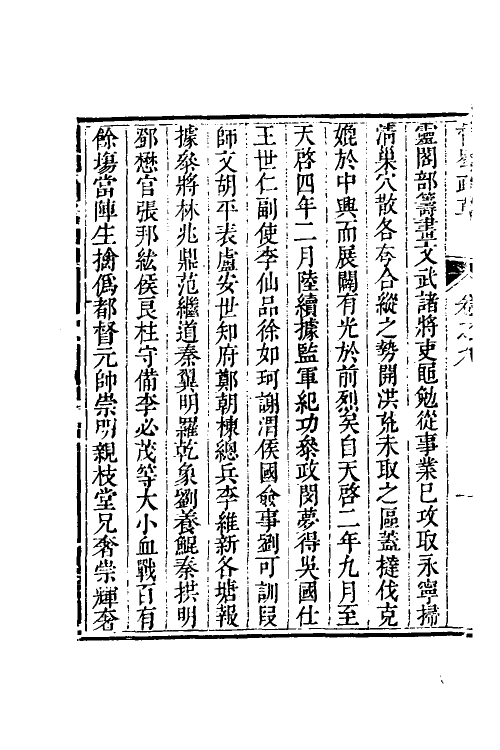 靈閣部籌畫文武諸將吏黽勉從事業已攻取永寧掃
淸巢穴散各夸合縱之勢開洪荒未取之區蓋撻伐克
媲於中興而展闢有光於前烈矣自天啓二年九月至
天啓四年二月陸續據監軍紀功叅政閔夢得吳國仕
王世仁副使李仙品徐如珂謝渭侯國僉事劉可訓叚
師文胡平表盧安世知府鄭朝棟總兵李維新各塘報
據叅將林兆鼎范繼道秦翼明羅乾象劉養鯤秦拱明
鄧懋官張邦紘侯良柱守備李必茂等大小血戰百有
餘塲當陣生擒僞都督元帥崇明親枝堂兄奢崇輝奢